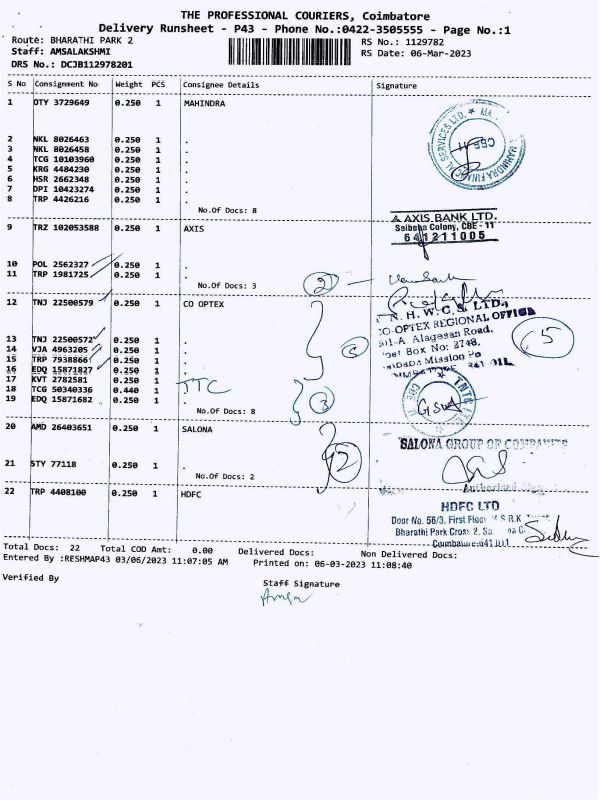 THE PROFESSIONAL COURIERS, Coimbatore
Delivery Runsheet - P43 - Phone No.:0422-3505555 - Page No.:1
Route: BHARATHI PARK 2
RS No.: 1129782
Staff: AMSALAKSHMI
RS Date: 06-Mar-2023
DRS No.: DCJB112978201
S No Consignment No Weight PCS Consignee Details Signature
1 OTY 3729649 0.250 1 MAHINDRA
2 NKL 8026463 0.250 1 .
3 NKL 8026458 0.250 1 .
4 TCG 10103960 0.250 1 .
5 KRG 4484230 0.250 1 .
6 HSR 2662348 0.250 1 .
7 DPI 10423274 0.250 1 .
8 TRP 4426216 0.250 1 .
No.Of Docs: 8
MAHINDRA FINANCIAL SERVICES LTD. ★
CBE-11
9 TRZ 102053588 0.250 1 AXIS
AXIS BANK LTD.
Saibaba Colony, CBE - 11
641211005
10 POL 2562327 0.250 1 .
11 TRP 1981725 0.250 1 .
No.Of Docs: 3
2
12 TNJ 22500579 0.250 1 CO OPTEX
T.N.H.W.C.S. LTD.,
CO-OPTEX REGIONAL OFFICE
Alagesan Road,
Post Box No: 2748,
5
13 TNJ 22500572 0.250 1 .
14 VJA 4963205 0.250 1 .
15 TRP 7938866 0.250 1 .
16 EDQ 15871827 0.250 1 .
17 KVT 2782581 0.250 1 .
18 TCG 50340336 0.440 1 .
19 EDQ 15871682 0.250 1 .
No.Of Docs: 8
5
TTC
3
20 AMD 26403651 0.250 1 SALONA
SALONA GROUP OF COMPANIES
21 STY 77118 0.250 1 .
No.Of Docs: 2
2
22 TRP 4408100 0.250 1 HDFC
HDFC LTD
Door No. 56/3, First Floor
Bharathi Park Cross 2,
Coimbatore-641 011
Total Docs: 22 Total COD Amt: 0.00 Delivered Docs: Non Delivered Docs:
Entered By :RESHMAP43 03/06/2023 11:07:05 AM Printed on: 06-03-2023 11:08:40
Verified By
Staff Signature
Amsa